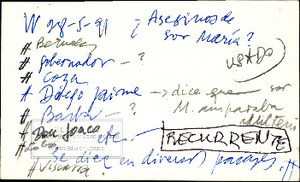 W 28-5-91 ¿Asesinos de
Sor María?
USADO
# Bernardez
# gobernador - ?
# Coza
# Diego Jaime -> dice que sor
M. amparaba adulterio
# Barba - ?
# Don Joaco etc
RECURRENTE
# Lobo
Se dice en diversos pasajes
# Vicaria